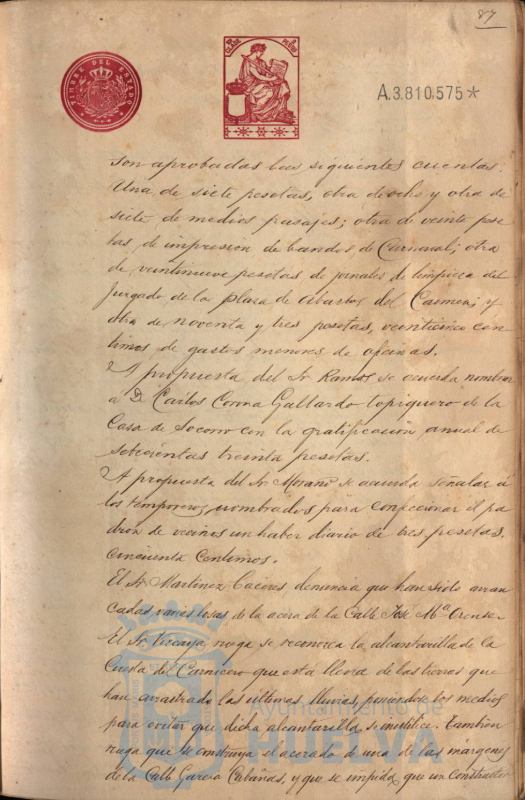 87
TIMBRE DEL ESTADO
10ª CLASE PESETAS
A.3.810.575*
son aprobadas las siguientes cuentas.
Una de siete pesetas, otra de ocho y otra de
siete de medios pasajes; otra de veinte pese
tas, de impresion de bandos de Carnaval; otra
de veintinueve pesetas de jornales de limpieza del
Juzgado, de la plaza de Abastos del Carmen; y
otra de noventa y tres pesetas, veinticinco cen
timos de gastos menores de oficinas.
A propuesta del Sr Ramos se acuerda nombrar
a D. Carlos Corona Gallardo topiquero de la
Casa de Socorro con la gratificación anual de
setecientas treinta pesetas.
A propuesta del Sr Morano se acuerda señalar á
los temporeros nombrados para confeccionar el pa
drón de vecinos un haber diario de tres pesetas.
cincuenta centimos.
El Sr Martinez Caceres, denuncia que han sido arran
cadas varias losas de la acera de la Calle José Mª Orense
El Sr Vizcaya, ruega se reconozca la alcantarilla de la
Cuesta del Carnicero que está llena de las tierras que
han arrastrado las ultimas lluvias, poniendose los medios
para evitar que dicha alcantarilla se inutilice. Tambien
ruega que se construya el acerado de una de las márgenes
de la Calle Garcia Cabañas, y que se impida que un constructor
Ayuntamiento de
HUELVA